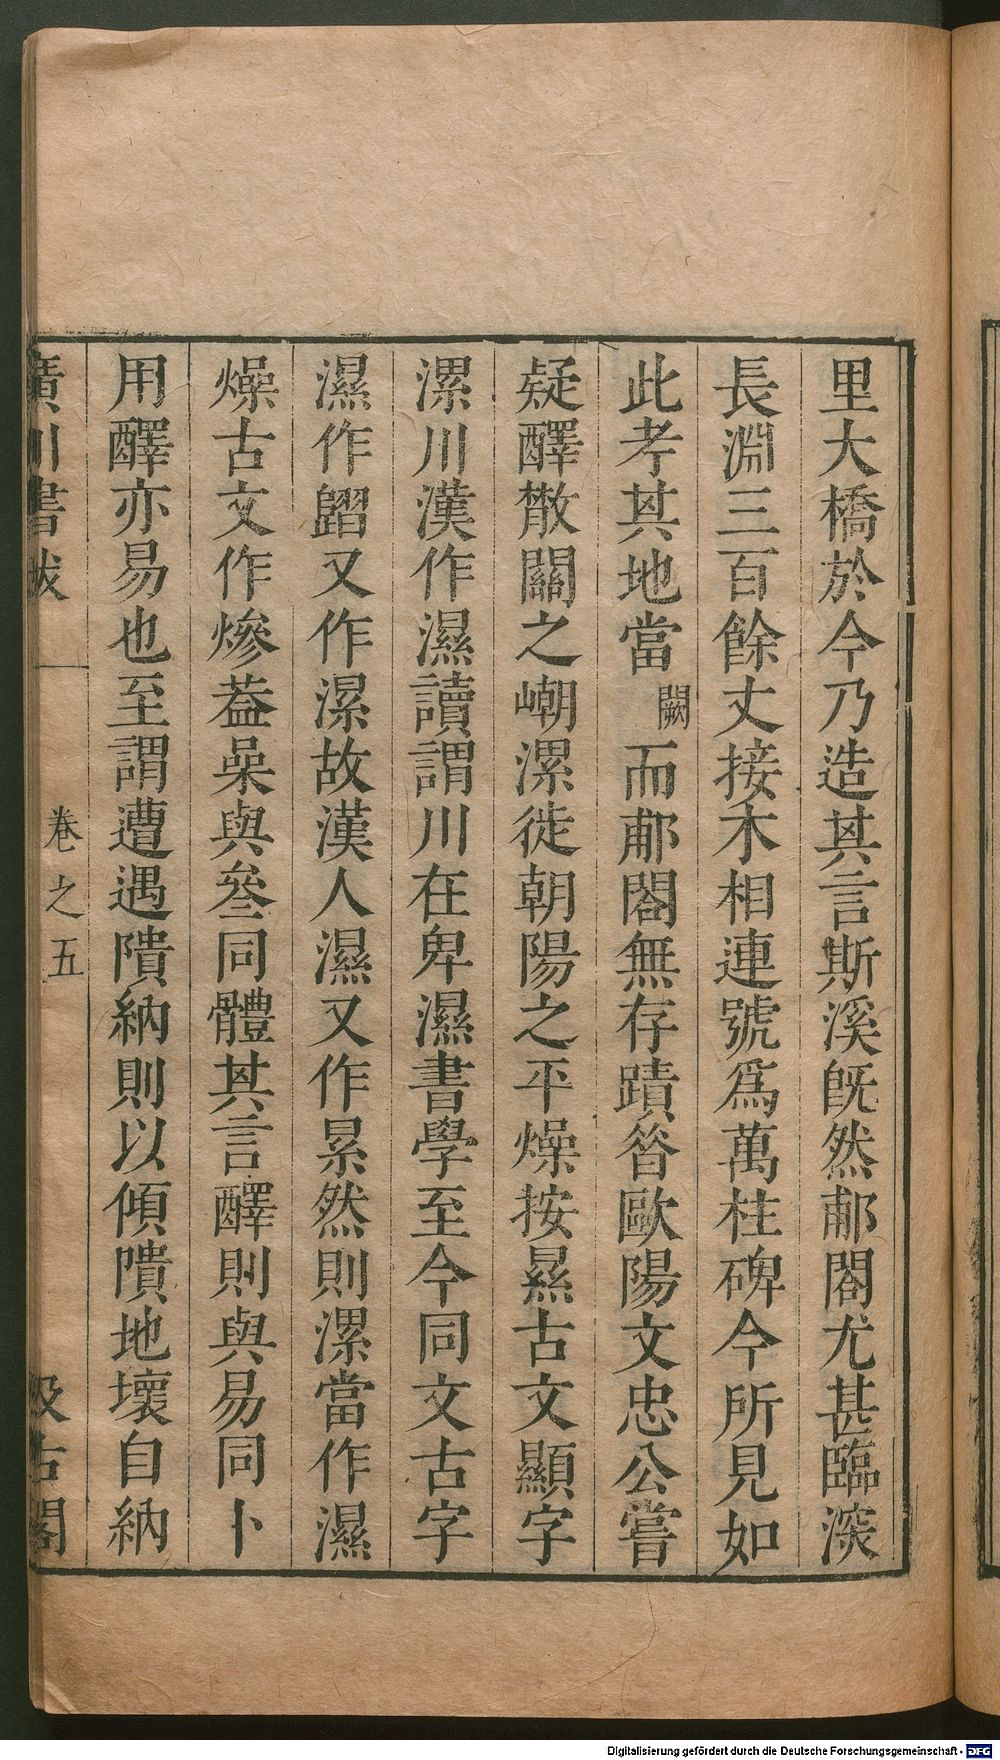 里大橋於今乃造其言斯溪旣然郙閣尤甚臨深
長淵三百餘丈接木相連號爲萬柱碑今所見如
此考其地當闕而郙閣無存蹟昝歐陽文忠公嘗
疑醳散關之嶃漯徙朝陽之平燥按㬎古文顯字
漯川漢作濕讀謂川在卑濕書學至今同文古字
濕作㽞又作漯故漢人濕又作累然則漯當作濕
燥古文作㷮葢喿與叅同體其言醳則與易同卜
用醳亦易也至謂遭遇隤納則以傾隤地壞自納
廣川書跋
卷之五
汲古閣
Digitalisierung gefördert durch die Deutsche Forschungsgemeinschaft - DFG